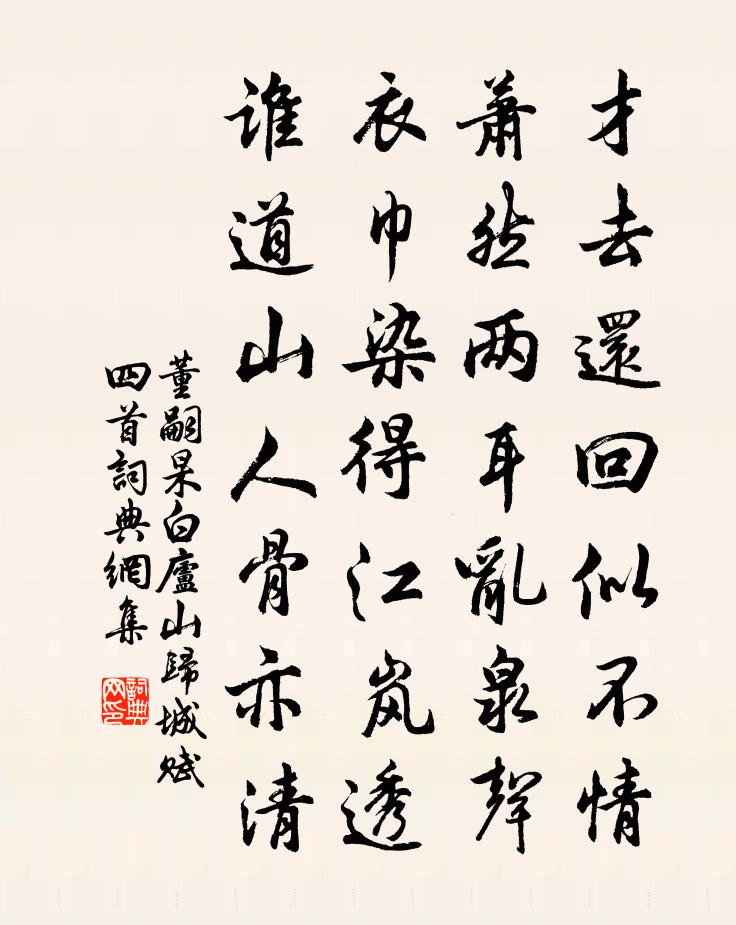 才去還回似不情
蕭然两耳亂泉聲
衣巾染得江岚透
誰道山人骨亦清
董嗣杲自廬山歸城賦
四首詞典網集
詞典网印